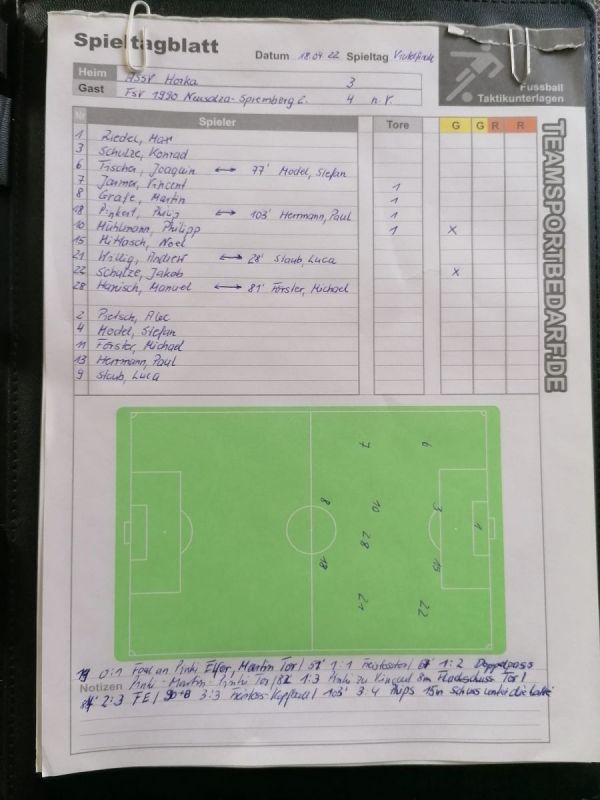 Spieltagblatt
Datum 18.04.22 Spieltag Viertelfinale
Fussball
Taktikunterlagen
Heim ASSV Horka 3
Gast FSV 1990 Neusalza-Spremberg 2. 4 n.V.
Nr Spieler Tore G G R R
1 Riedel, Max
3 Schulze, Konrad
6 Tischer, Joaquin ↔ 77' Model, Stefan
7 Jarmer, Vincent 1
8 Grafe, Martin 1
18 Pinkert, Philip ↔ 103' Herrmann, Paul 1
10 Mühlmann, Philipp 1 x
15 Mittasch, Noel
21 Willig, Andrew ↔ 28' Staub, Luca
22 Schulze, Jakob x
28 Hanisch, Manuel ↔ 81' Förster, Michael
2 Pietsch, Alec
4 Model, Stefan
11 Förster, Michael
13 Herrmann, Paul
9 Staub, Luca
TEAMSPORTBEDARF.DE
7 6
8 10 3 1
28
18 15
21 22
0:1 Foul an Pinki Elfer, Martin Tor / 51' 1:1 Freistosstor / 1:2 Doppelpass
Notizen Pinki - Martin - Pinki Tor / 82 1:3 Pinki zu Vincent 8m Flachschuss Tor /
2:3 FE / 90+8 3:3 Freistoss - Kopfball / 103' 3:4 15m Schuss unter die Latte